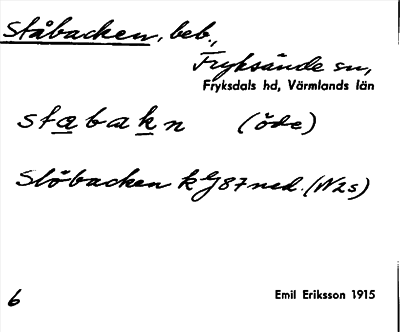 Ståbacken, beb.,
Fryksände sn,
Fryksdals hd, Värmlands län
stabakn (öde)
Slöbacken k G87 ned. (N2s)
6 Emil Eriksson 1915